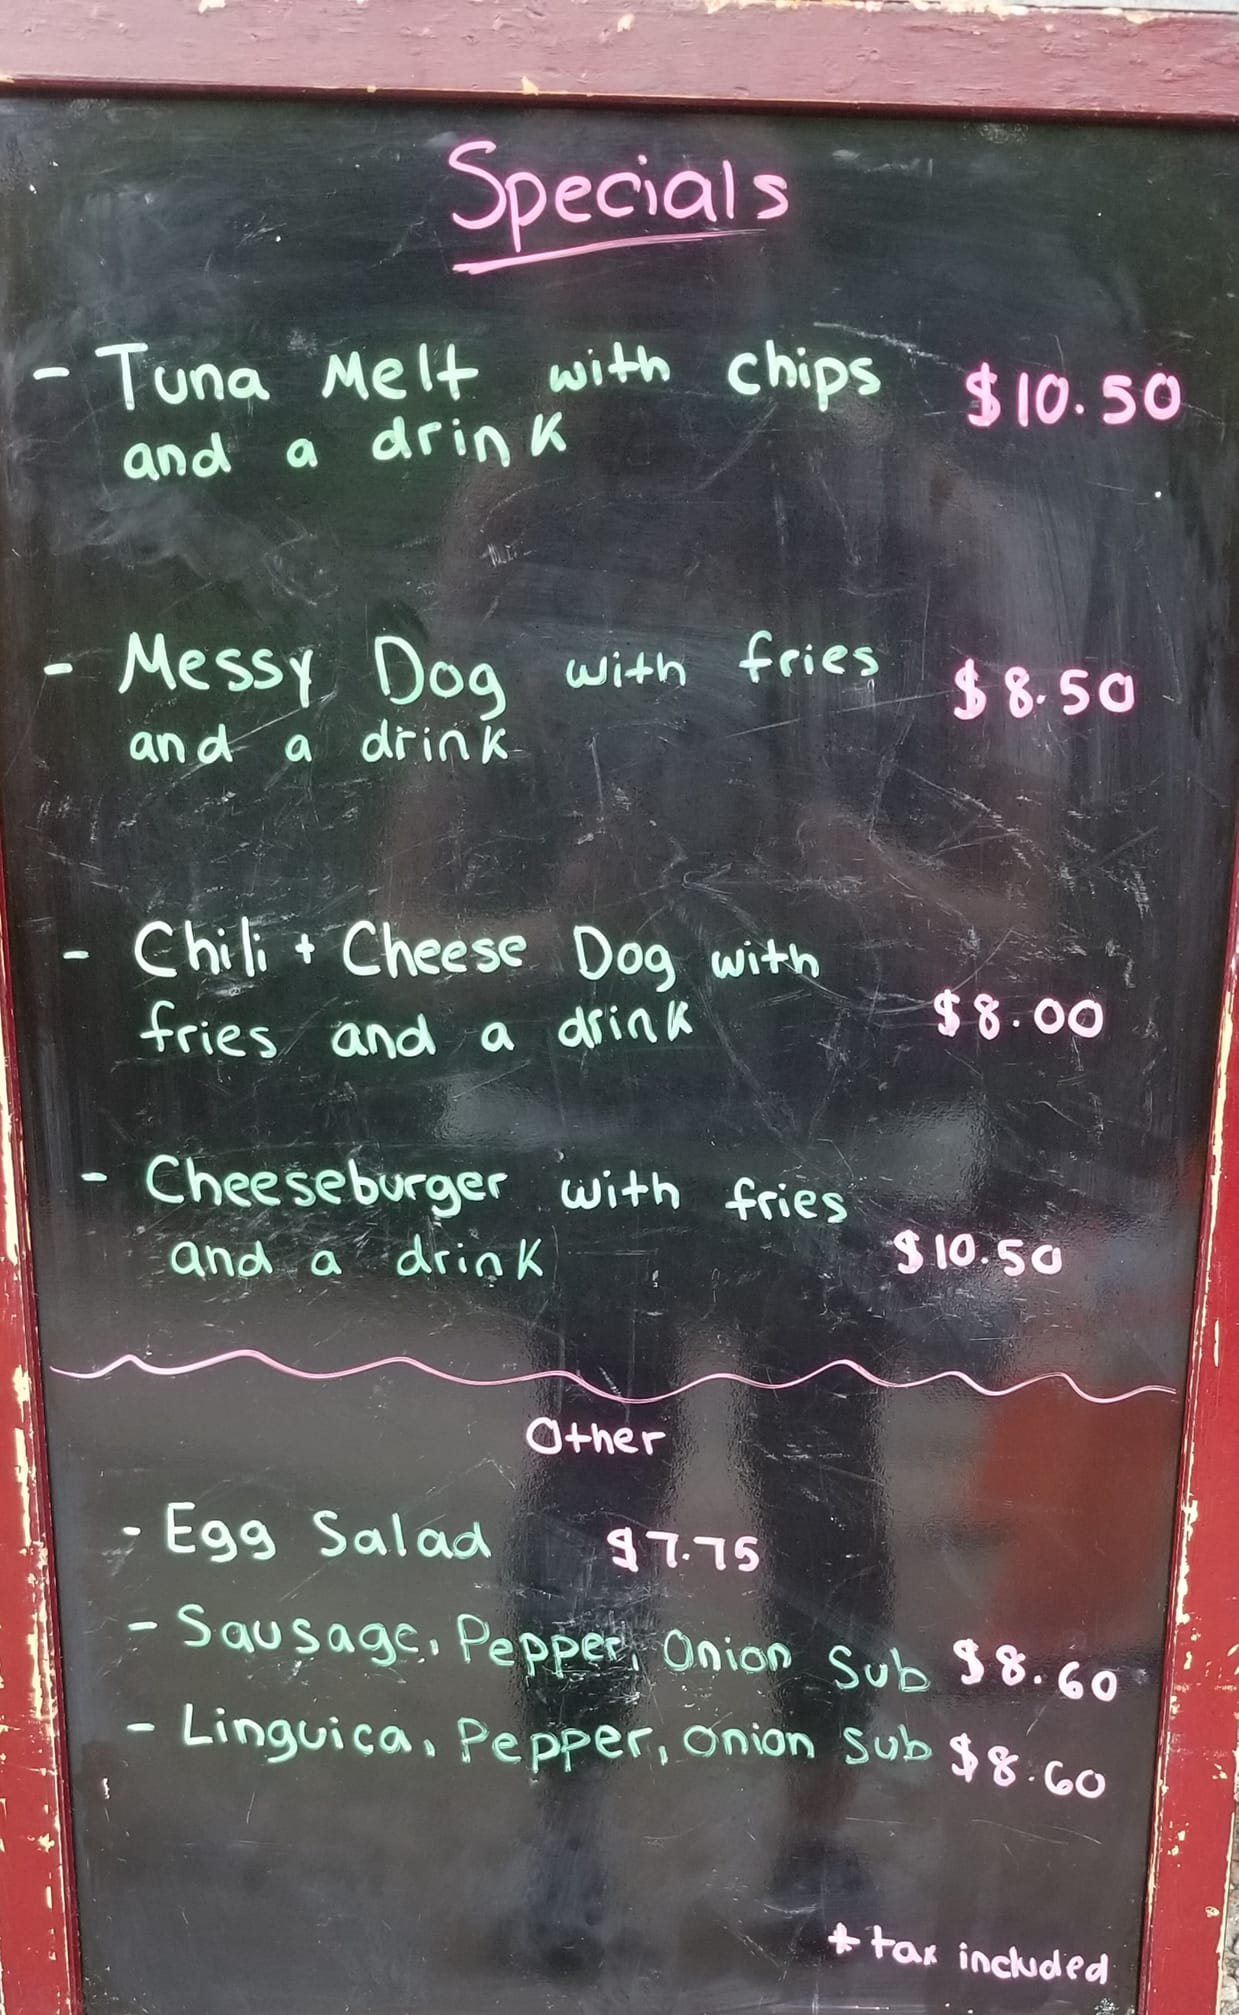 Specials
- Tuna Melt with chips $10.50
and a drink
- Messy Dog with fries $8.50
and a drink
- Chili + Cheese Dog with
fries and a drink $8.00
- Cheeseburger with fries
and a drink $10.50
Other
- Egg Salad $7.75
- Sausage, Pepper, Onion Sub $8.60
- Linguica, Pepper, Onion Sub $8.60
* tax included